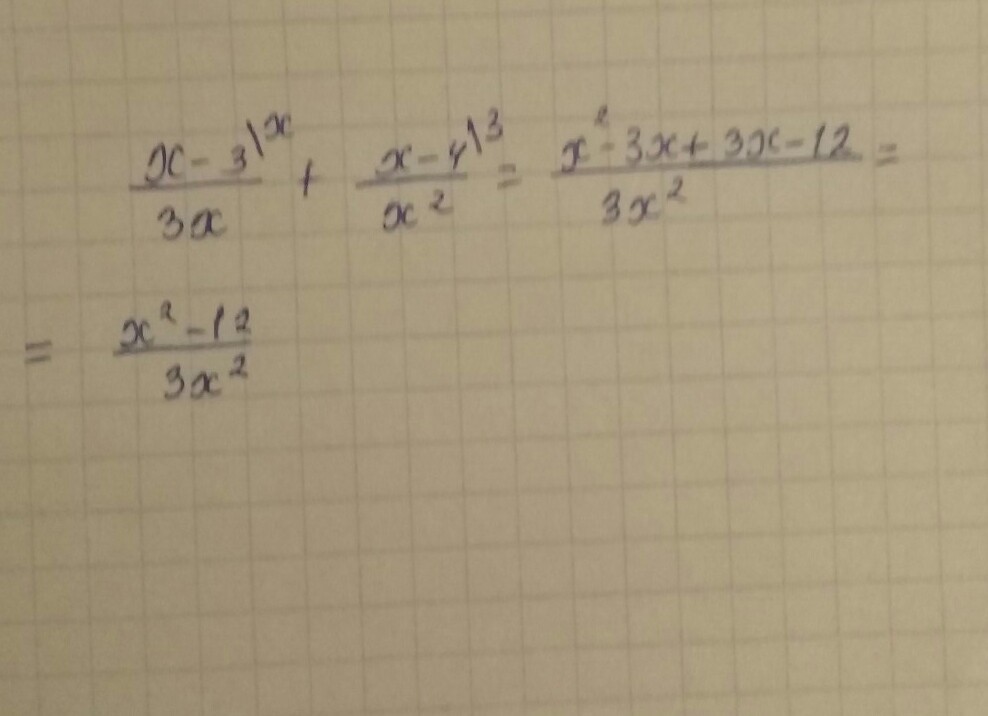 (x-3)/(3x) \x + (x-4)/(x²) \3 = (x²-3x+3x-12)/(3x²) =
= (x²-12)/(3x²)